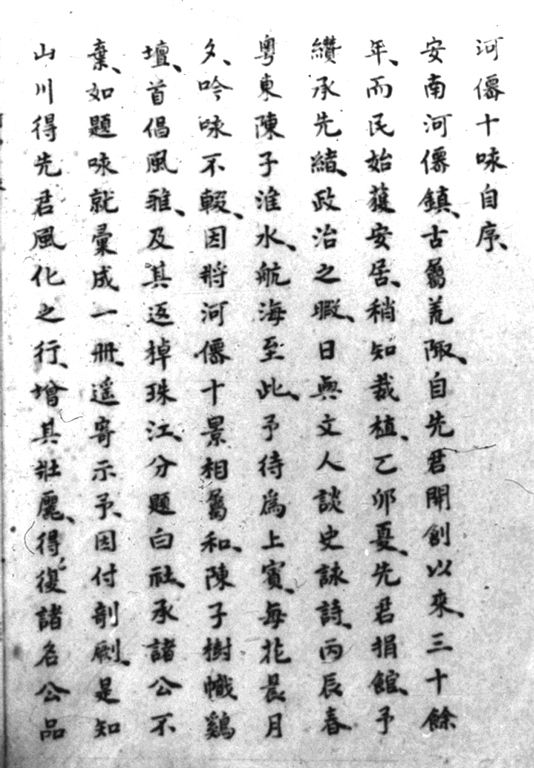 河僊十咏自序、
安南河僊鎮、古屬荒陬、自先君開創以來、三十餘
年、而民始獲安居、稍知栽植、乙卯夏、先君捐館、予
纘承先緒、政治之暇、日與文人談史詠詩、丙辰春
粵東陳子淮水、航海至此、予待為上賓、每花晨月
夕、吟咏不輟、因將河僊十景相屬和、陳子樹幟鷄
壇、首倡風雅、及其返棹珠江、分題白社、承諸公不
棄、如題咏就彙成一冊、遥寄示予、因付剞劂、是知
山川得先君風化之行、增其壯麗、得復諸名公品